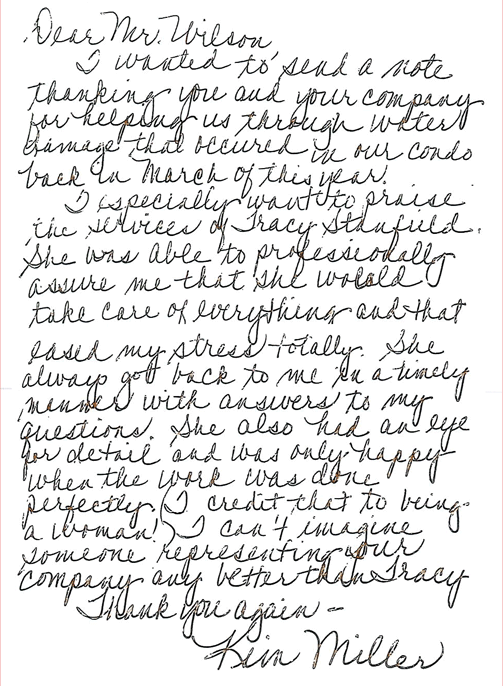 Dear Mr. Wilson,
I wanted to send a note
thanking you and your company
for helping us through water
damage that occured in our condo
back in March of this year!
I especially want to praise
the services of Tracy Stanfield.
She was able to professionally
assure me that she would
take care of everything and that
eased my stress totally. She
always got back to me in a timely
manner with answers to my
questions. She also had an eye
for detail and was only happy
when the work was done
perfectly. (I credit that to being
a woman!) I can't imagine
someone representing your
company any better than Tracy
Thank you again -
Kim Miller